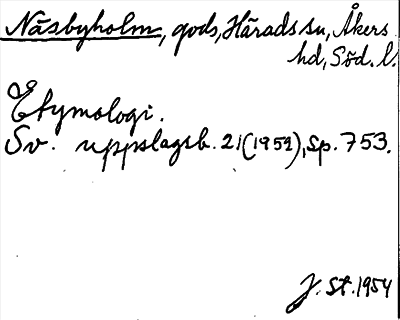 Näsbyholm, gods, Härads sn, Åkers
hd, Söd. l.
Etymologi.
Sv. uppslagsb. 21(1952), sp. 753.
J. St. 1954